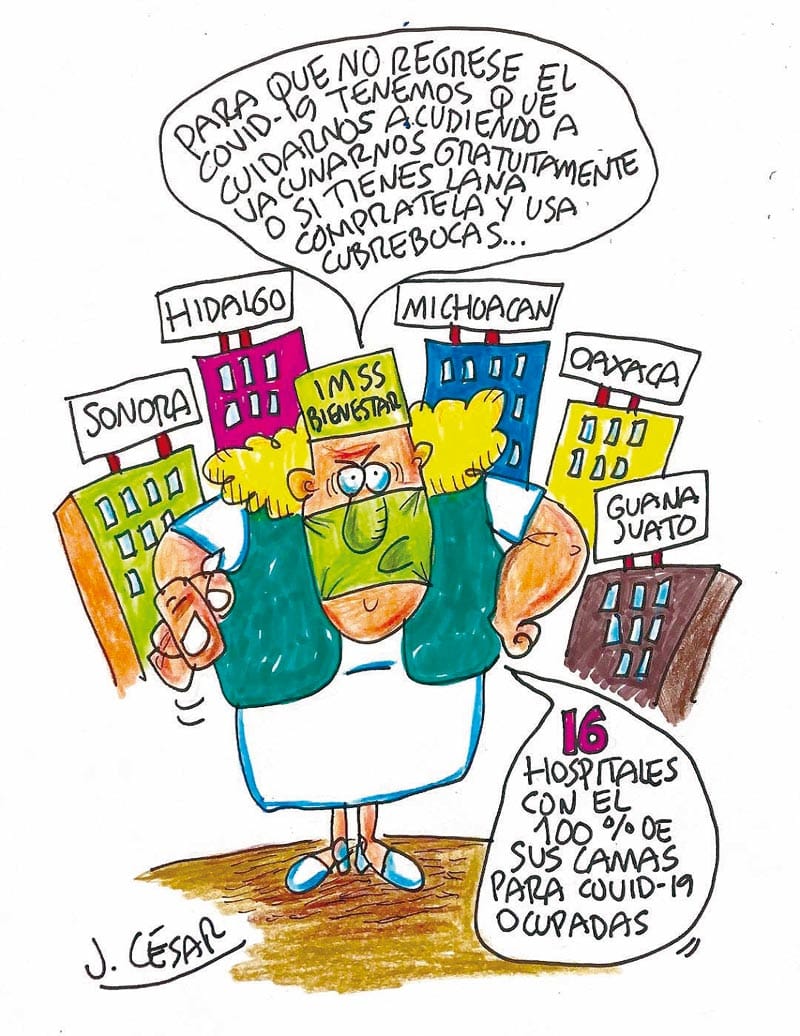 PARA QUE NO REGRESE EL
COVID-19 TENEMOS QUE
CUIDARNOS ACUDIENDO A
VACUNARNOS GRATUITAMENTE
O SI TIENES LANA
COMPRATELA Y USA
CUBREBOCAS...
HIDALGO
MICHOACAN
SONORA
IMSS
BIENESTAR
OAXACA
GUANA
JUATO
16
HOSPITALES
CON EL
100 % DE
SUS CAMAS
PARA COVID-19
OCUPADAS
J. CÉSAR